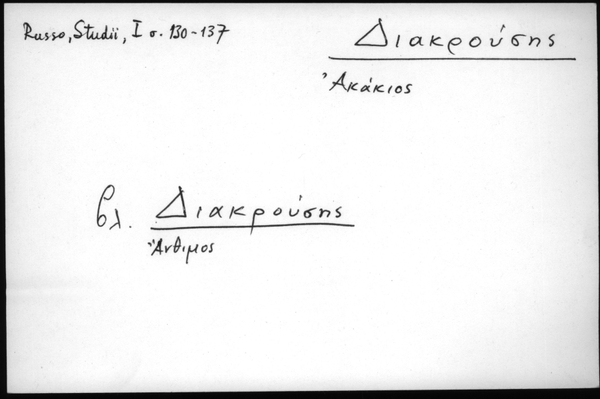 Russo, Studii, I σ. 130-137
Διακρούσης
Ἀκάκιος
βλ. Διακρούσης
Ἄνθιμος